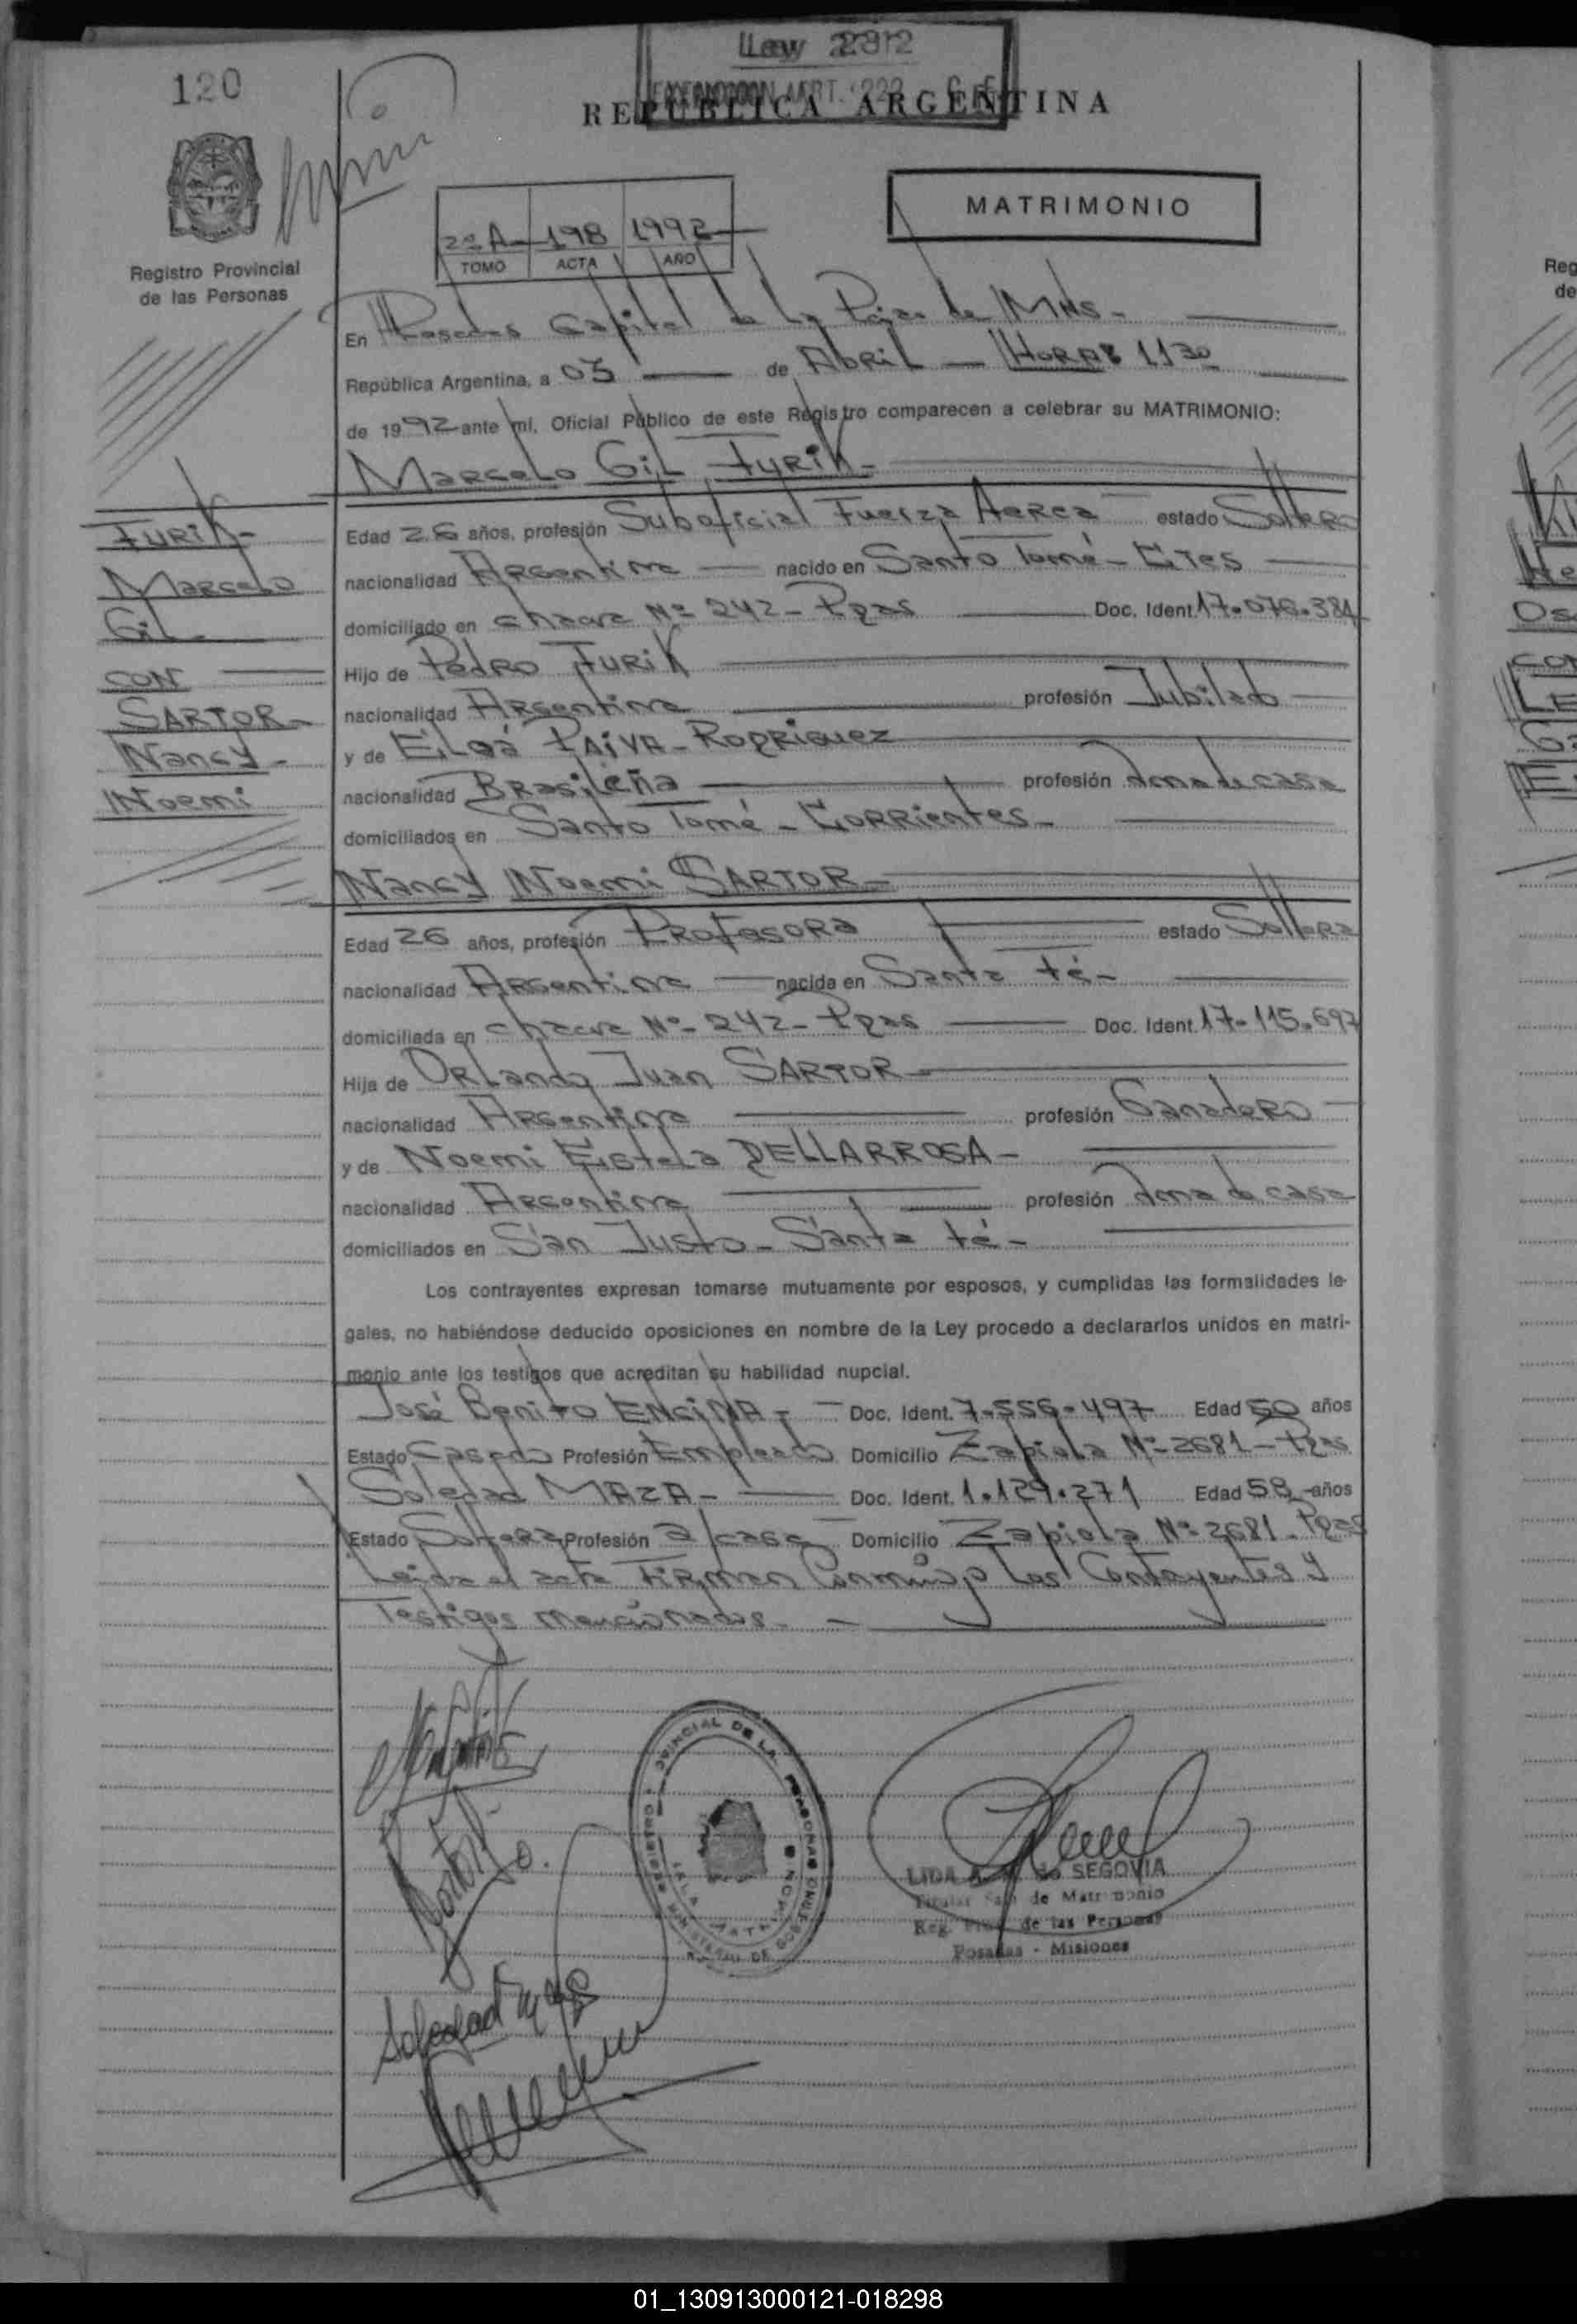 120
Ley 2312
REPUBLICA ARGENTINA
MATRIMONIO
2º A 198 1992
TOMO ACTA AÑO
Registro Provincial
de las Personas
En Posadas Capital de la Pcia de Mns.
República Argentina, a 03 de Abril HORA 1130
de 1992 ante mí, Oficial Público de este Registro comparecen a celebrar su MATRIMONIO:
Marcelo Gil Furik
Edad 26 años, profesión Suboficial Fuerza Aerea estado Soltero
nacionalidad Argentina nacido en Santo Tomé - Ctes
domiciliado en chacra Nº 242 - Pdas Doc. Ident. 17.076.384
Hijo de Pedro Furik
nacionalidad Argentina profesión Jubilado
y de PAIVA - Rodriguez
nacionalidad Brasileña profesión Ama de casa
domiciliados en Santo Tomé - Corrientes -
Nancy Noemi SARTOR -
Edad 26 años, profesión Profesora estado Soltera
nacionalidad Argentina nacida en Santa Fé -
domiciliada en chacra Nº 242 - Pdas Doc. Ident. 17.115.697
Hija de Orlando Juan SARTOR -
nacionalidad Argentina profesión Ganadero
y de Noemi Estela DELLARROSA -
nacionalidad Argentina profesión Ama de casa
domiciliados en San Justo - Santa Fé -
Los contrayentes expresan tomarse mutuamente por esposos, y cumplidas las formalidades le-
gales, no habiéndose deducido oposiciones en nombre de la Ley procedo a declararlos unidos en matri-
monio ante los testigos que acreditan su habilidad nupcial.
José Benito ENCINA - Doc. Ident. 7.556.497 Edad 50 años
Estado Casado Profesión Empleado Domicilio Zapiola Nº 2681 - Pdas
Soledad MAZA - Doc. Ident. 1.129.271 Edad 58 años
Estado Soltera Profesión a/casa Domicilio Zapiola Nº 2681 - Pdas
Leida el acta Firman Conmigo Los Contrayentes y
Testigos mencionados -
FURIK -
Marcelo
Gil
CON
SARTOR -
Nancy -
Noemi
LIDA de SEGOVIA
Titular de Matrimonio
Reg. de las Personas
Posadas - Misiones
Soledad
Reg
de
01_130913000121-018298